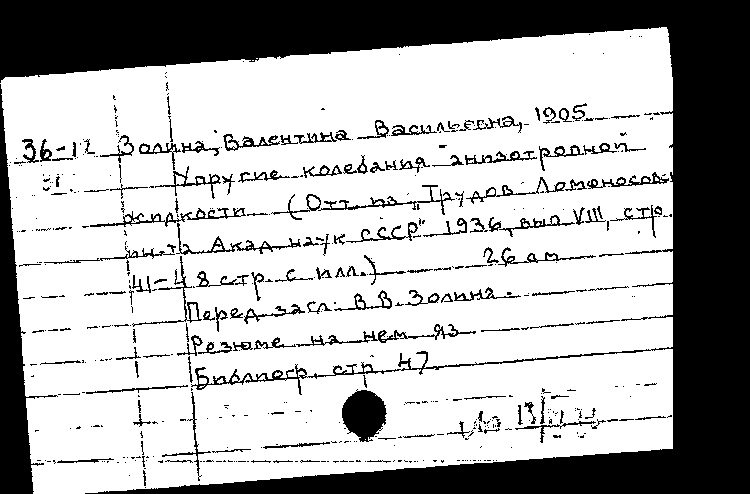 36-12 Золина, Валентина Васильевна, 1905
31. Упругие колебания анизотропной
жидкости (Отт. из „Трудов Ломоносовск
ин-та Акад. наук СССР" 1936, вып VIII, стр.
41-48 стр. с илл.) 26 см
Перед загл: В.В. Золина.
Резюме на нем яз.
Библиогр. стр. 47.